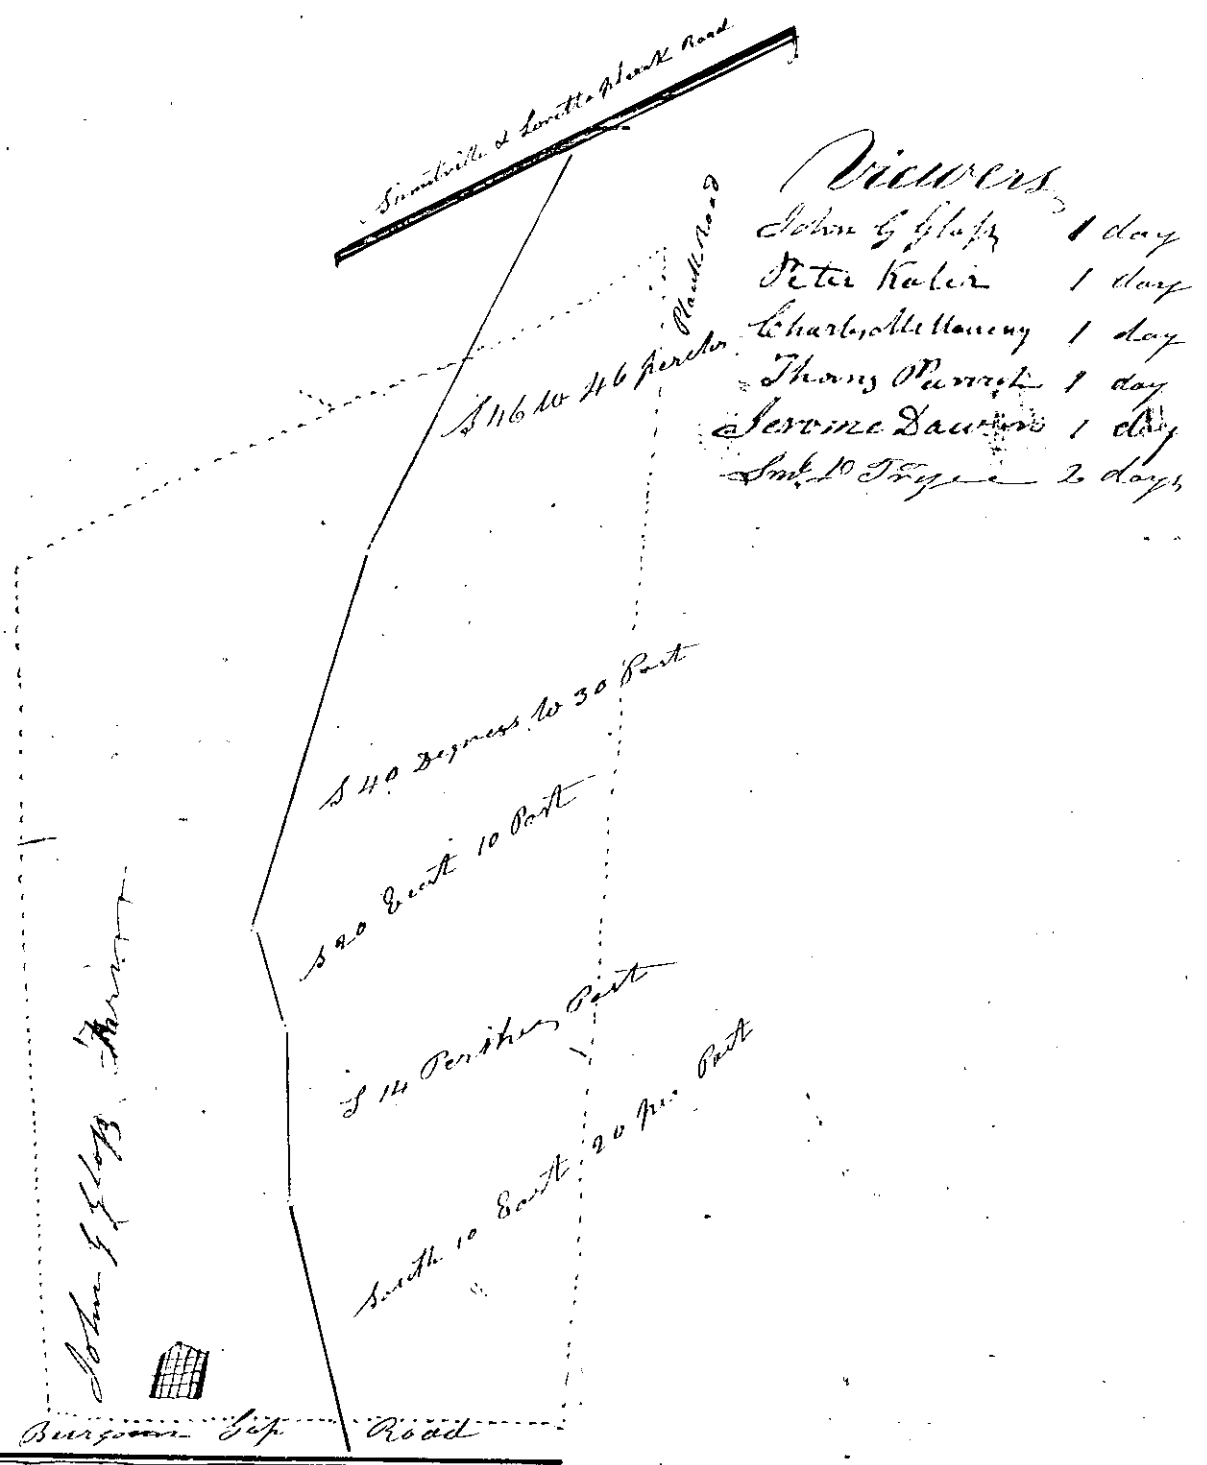 Summitville & Loretto plank Road
Viewers
John G Glass 1 day
Peter Kaler 1 day
Charles McManeny 1 day
Thomas Parrish 1 day
Jerome Dawson 1 day
2 days
Plank Road
S 46 W 46 perches
S 40 Degress W 30 Part
S 20 East 10 Part
S 14 Perches Part
South 10 East 20 per Part
John G Glass Farm
Burgoon Gap Road